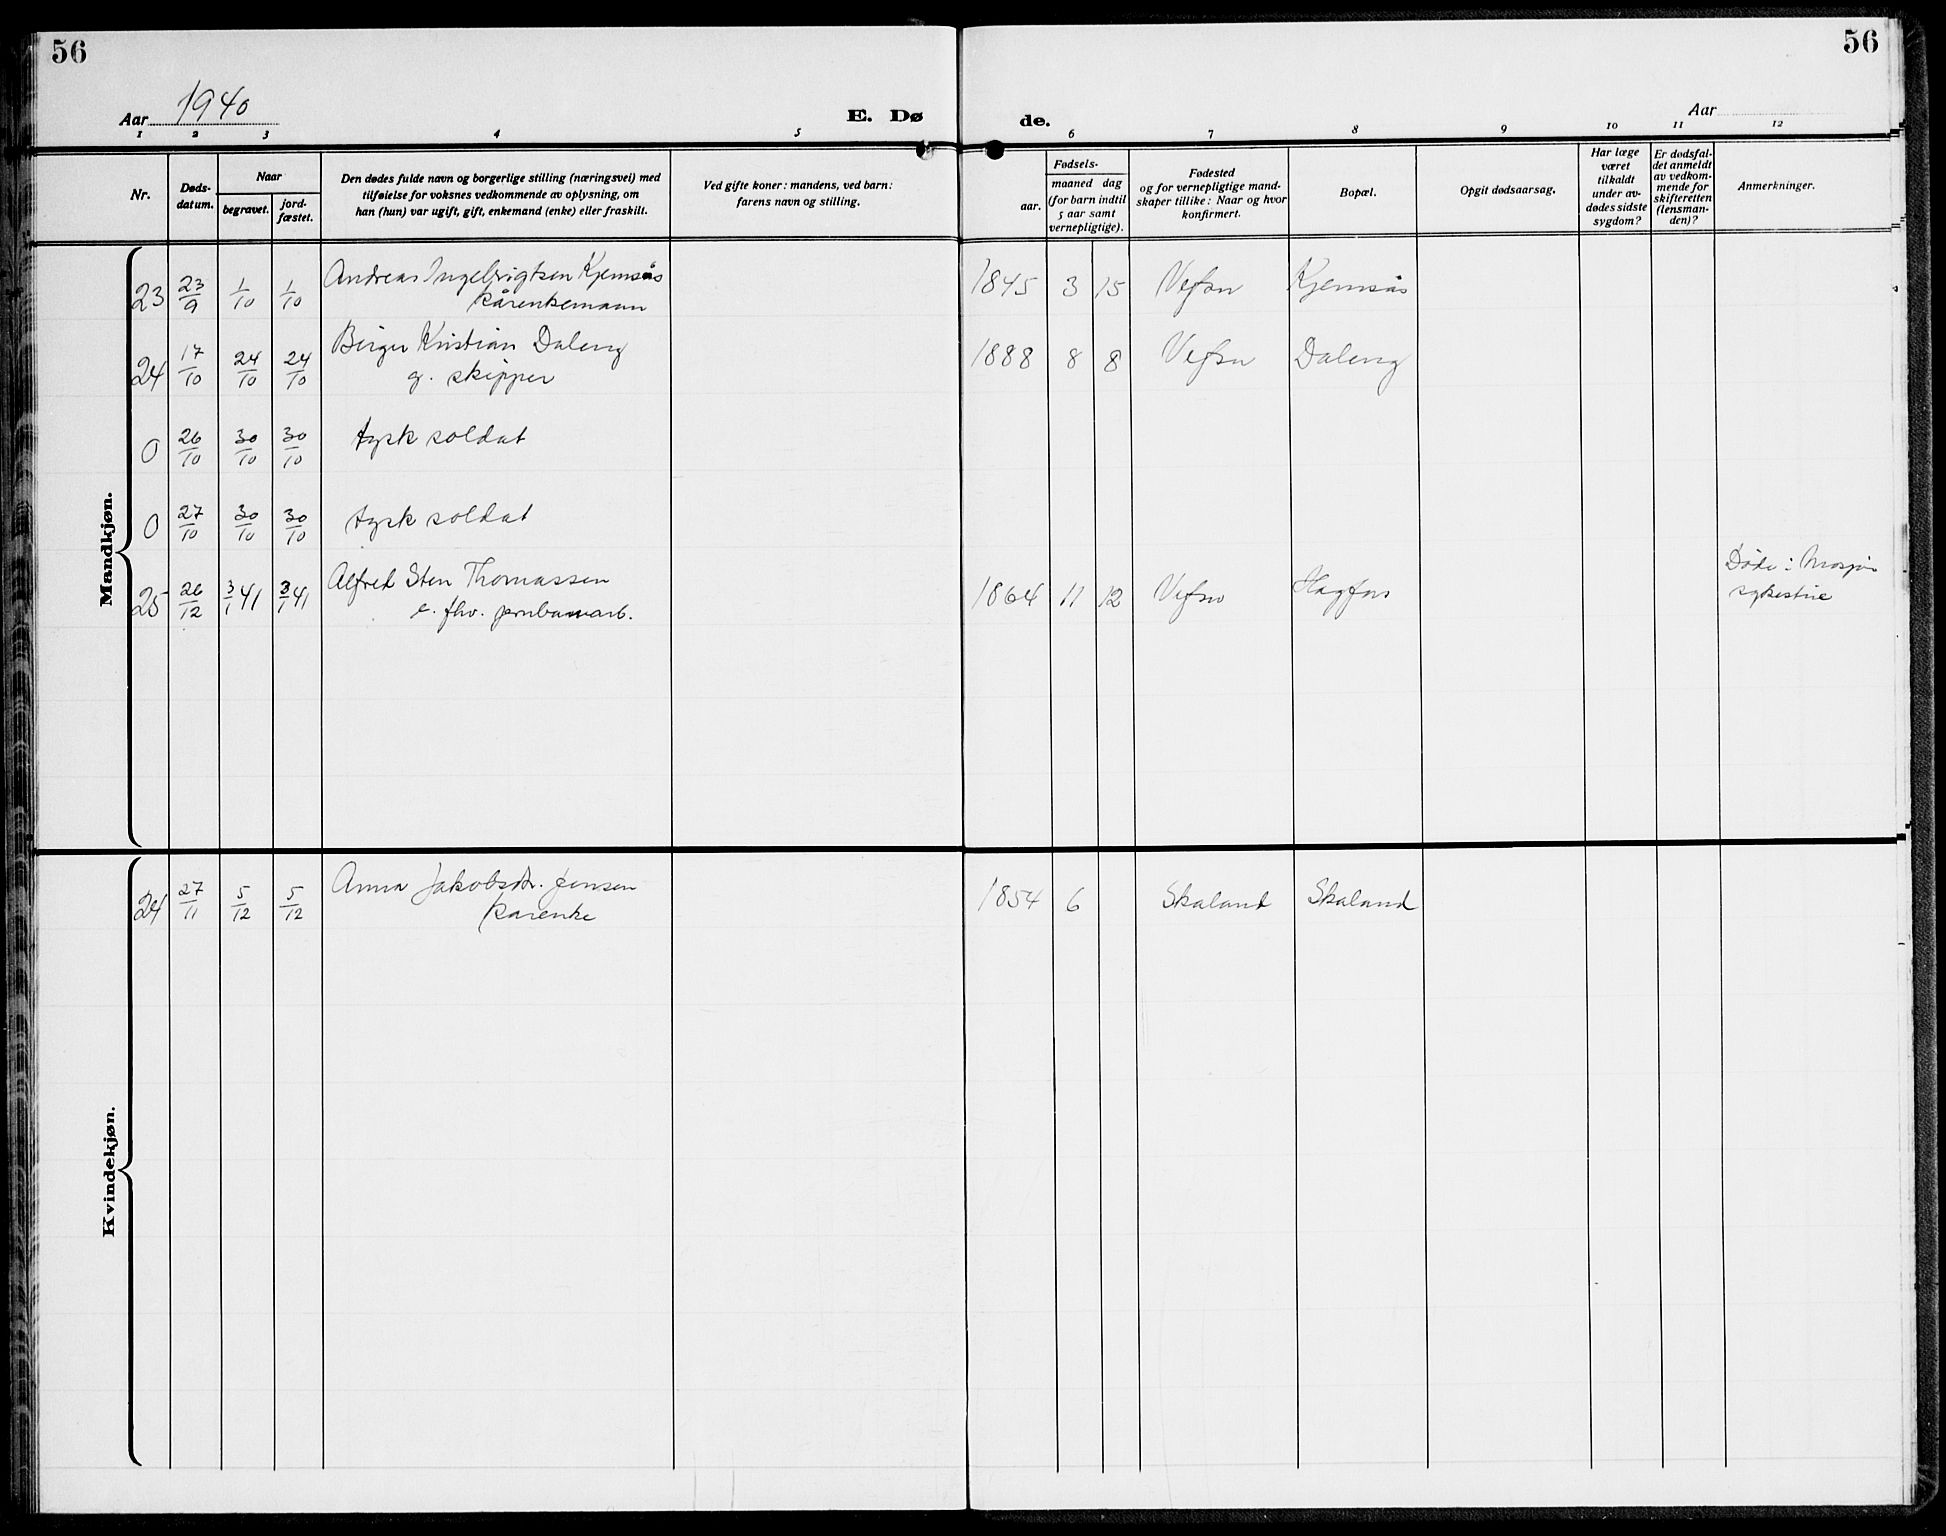 56
56
Aar 1940
E. Dø
de.
Aar
1 2 3 4 5 6 7 8 9 10 11 12
Nr.
Døds-
datum.
Naar
begravet.
jord-
fæstet.
Den dødes fulde navn og borgerlige stilling (næringsvei) med
tilføielse for voksnes vedkommende av oplysning, om
han (hun) var ugift, gift, enkemand (enke) eller fraskilt.
Ved gifte koner: mandens, ved barn:
farens navn og stilling.
Fødsels-
aar.
maaned dag
(for barn indtil
5 aar samt
vernepligtige).
Fødested
og for vernepligtige mand-
skaper tillike: Naar og hvor
konfirmert.
Bopæl.
Opgit dødsaarsag.
Har læge
været
tilkaldt
under av-
dødes sidste
sygdom?
Er dødsfal-
det anmeldt
av vedkom-
mende for
skifteretten
(lensman-
den)?
Anmerkninger.
Mandkjøn.
23 23/9 1/10 1/10 Andreas Ingebrigtsen Kjemsås 1845 3 15 Vefsn Kjemsås
kårenkemann
24 17/10 24/10 24/10 Birger Kristian Daleng 1888 8 8 Vefsn Daleng
g. skipper
0 26/10 30/10 30/10 tysk soldat
0 27/10 30/10 30/10 tysk soldat
25 26/12 3/1 41 3/1 41 Alfred Sten Thomassen 1864 11 12 Vefsn Hagfors Døde i Mosjøn
e. fhv. jernbanearb. sykestue
Kvindekjøn.
24 27/11 5/12 5/12 Anna Jakobsdtr. Jensen 1854 6 Skaland Skaland
kårenke